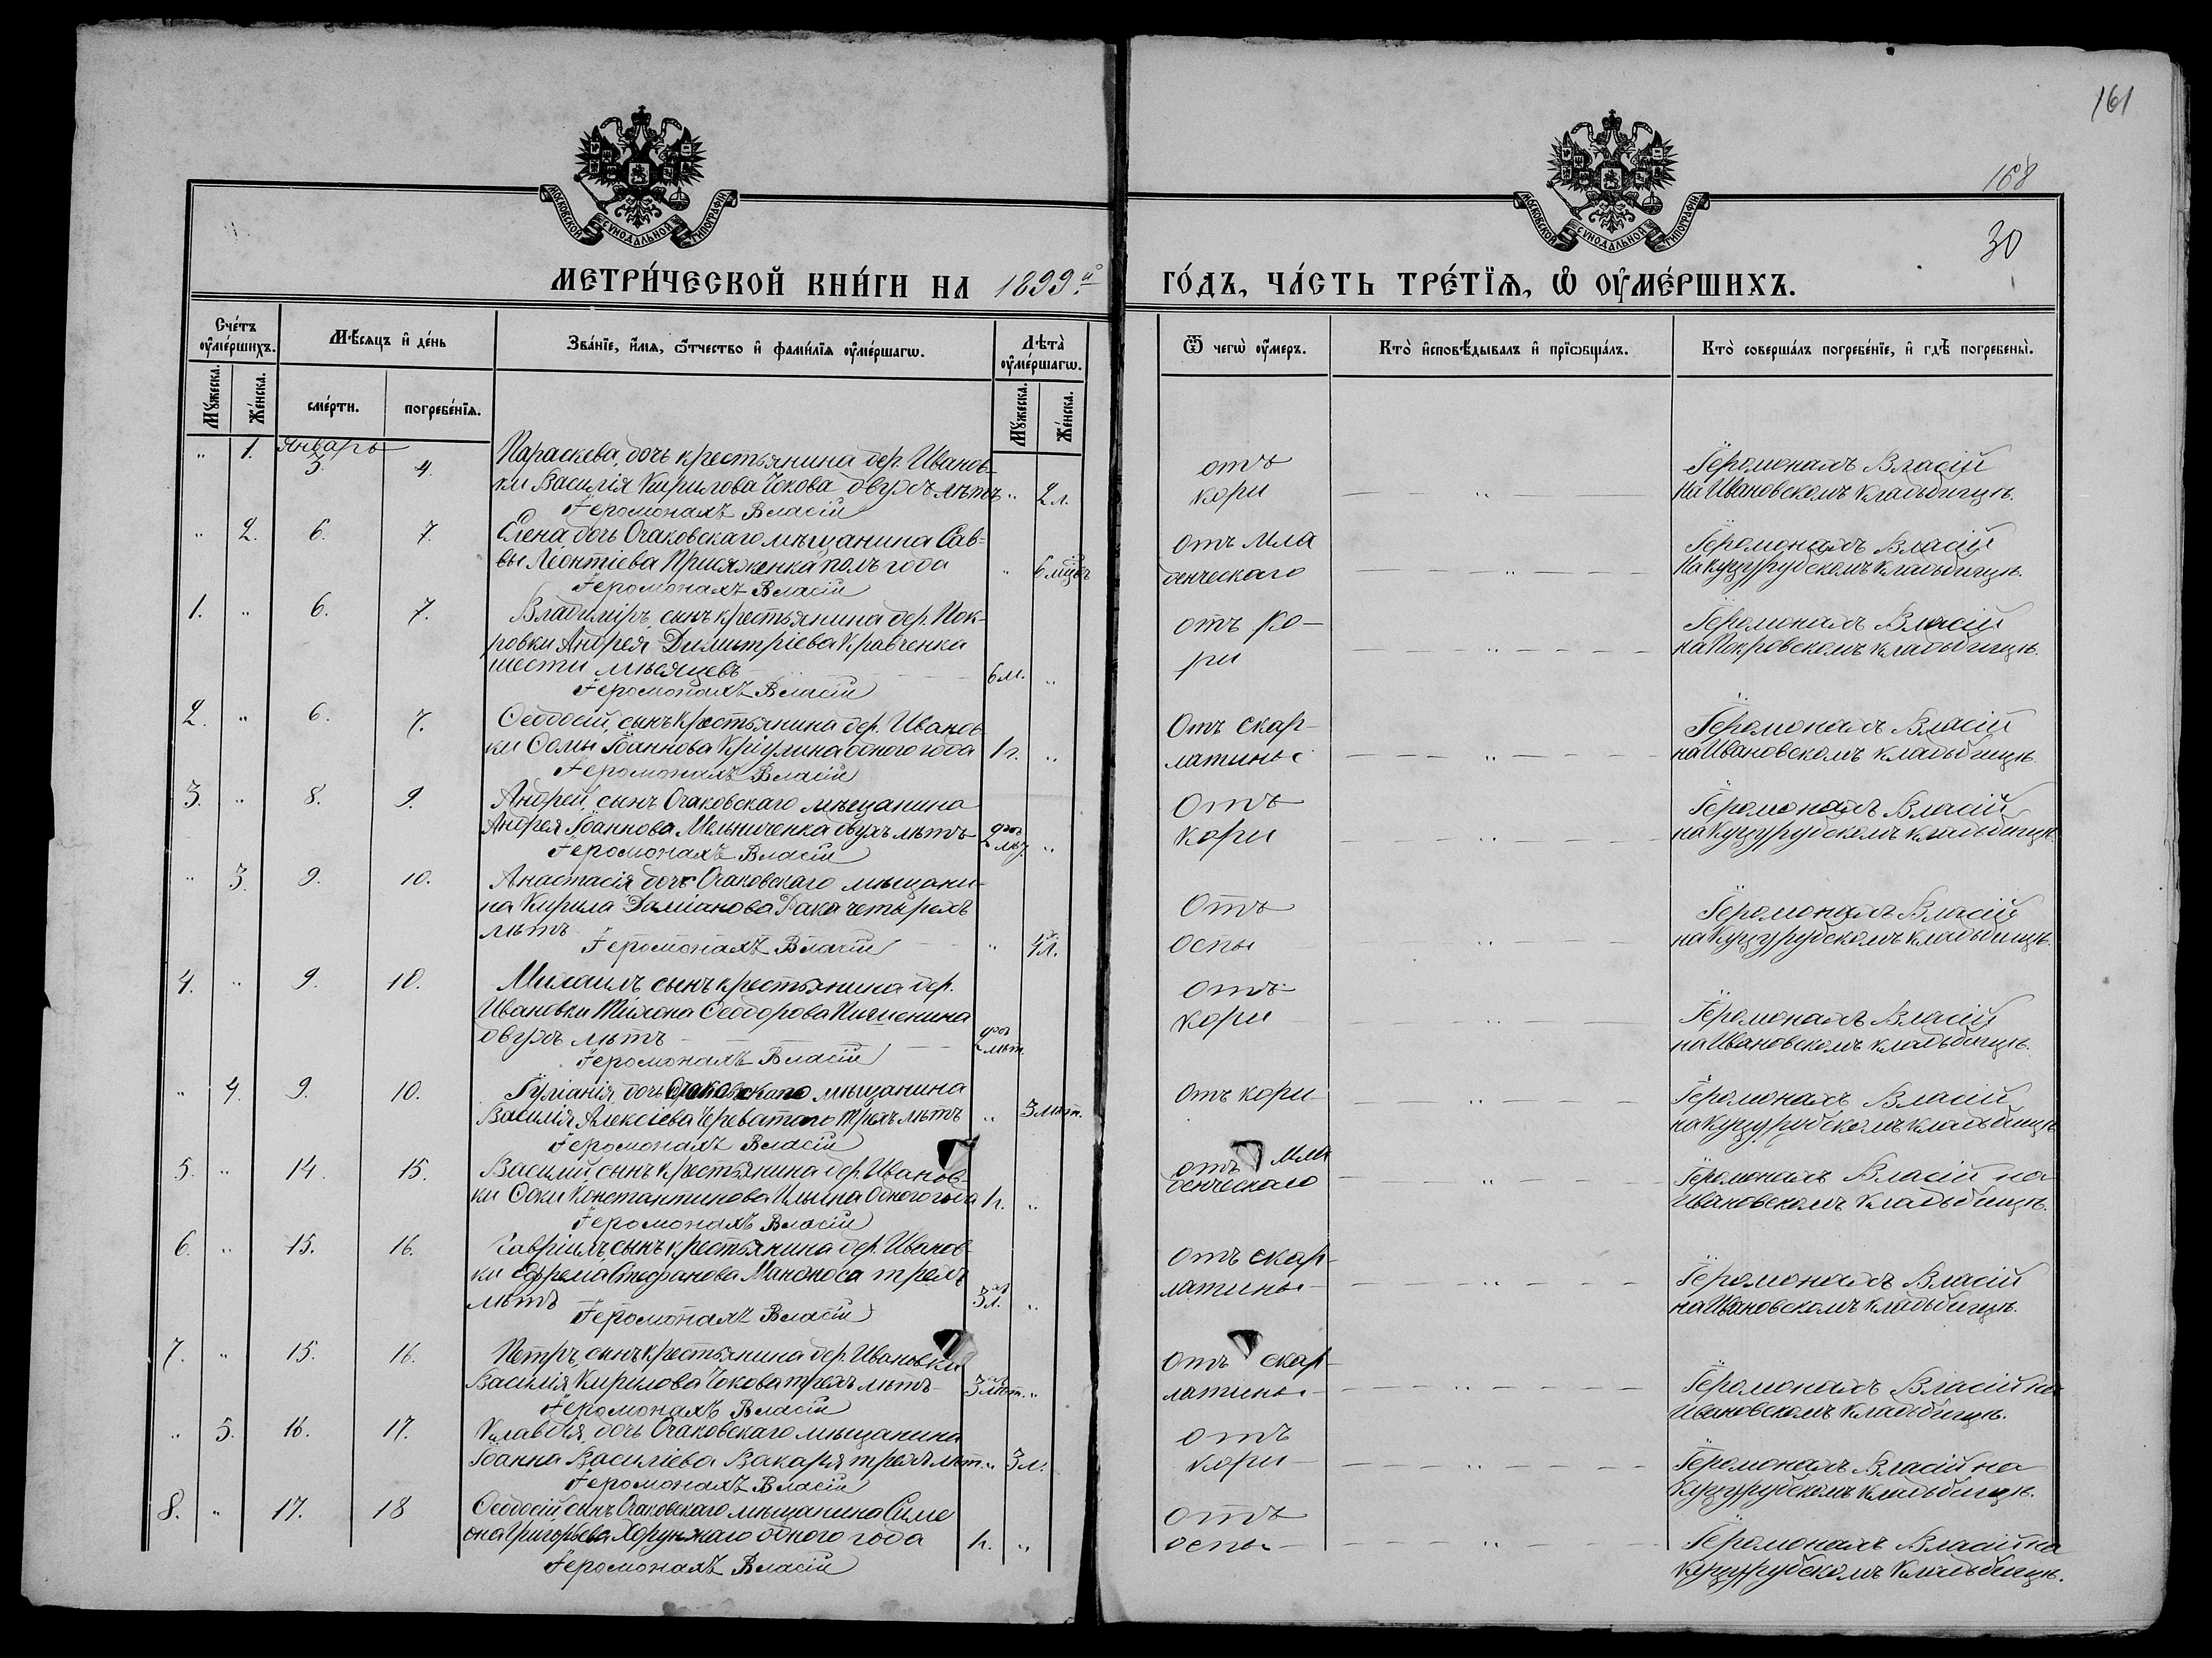 161
168
30
МОСКОВСКОЙ СУНОДАЛЬНОЙ ТИПОГРАФІИ
МОСКОВСКОЙ СУНОДАЛЬНОЙ ТИПОГРАФІИ
МЕТРИ́ЧЕСКОЙ КНИ́ГИ НА 1899й ГО́ДЪ, ЧА́СТЬ ТРЕ́ТІЯ, Ѽ ОУ҆МЕ́РШИХЪ.
Сче́тъ оу҆ме́ршихъ.
Му́жеска.
Же́нска.
Мѣ́сяцъ и҆ де́нь
сме́рти.
погребе́нїя.
Зва́нїе, и҆́мя, ѻ҆́тчество и҆ фами́лїя оу҆ме́ршагѡ.
Лѣта̀ оу҆ме́ршагѡ.
Му́жеска.
Же́нска.
Ѿ чегѡ̀ оу҆́меръ.
Кто̀ и҆сповѣ́дывалъ и҆ прїѡбща́лъ.
Кто̀ соверша́лъ погребе́нїе, и҆ гдѣ̀ погребены̀.
Январь
" 1. 3. 4. Параскева, дочь крестьянина дер. Иванов-
ки Василія Кирилова Чокова двухъ лѣтъ " 2 л.
Іеромонахъ Власій
отъ
кори
Іеромонахъ Власій
на Ивановскомъ кладбищѣ.
" 2. 6. 7. Елена дочь Очаковскаго мѣщанина Сав-
вы Леонтіева Присяженка полъ года " 6 мцъв
Іеромонахъ Власій
отъ мла
денческаго
Іеромонахъ Власій
на Куцурубскомъ кладбищѣ.
1. " 6. 7. Владиміръ, сынъ крестьянина дер. Пок-
ровки Андрея Димитріева Кравченка
шести мѣсяцевъ 6 м. "
Іеромонахъ Власій
отъ ко-
ри
Іеромонахъ Власій
на Покровскомъ кладбищѣ.
2. " 6. 7. Ѳеодосій, сынъ крестьянина дер. Иванов
ки Ѳомы Іоаннова Кріулина одного года 1 г. "
Іеромонахъ Власій
Отъ скар-
латины
Іеромонахъ Власій
на Ивановскомъ кладбищѣ
3. " 8. 9. Андрей, сынъ Очаковскаго мѣщанина
Андрея Іоаннова Мельниченка двухъ лѣтъ 2 "
Іеромонахъ Власій
Отъ
кори
Іеромонахъ Власій
на Куцурубскомъ кладбищѣ
" 3. 9. 10. Анастасія дочь Очаковскаго мѣщани-
на Кирила Даміанова Рака четырехъ
лѣтъ " 4 л.
Іеромонахъ Власій
Отъ
оспы
Іеромонахъ Власій
на Куцурубскомъ кладбищѣ.
4. " 9. 10. Михаилъ сынъ крестьянина дер.
Ивановки Тихона Ѳеодорова
двухъ лѣтъ 2 лѣт.
Іеромонахъ Власій
Отъ
кори
Іеромонахъ Власій
на Ивановскомъ кладбищѣ.
" 4. 9. 10. Іуліанія дочь Очаковскаго мѣщанина
Василія Алексіева Череватого трехъ лѣтъ " 3 лѣт.
Іеромонахъ Власій
Отъ кори
Іеромонахъ Власій
на Куцурубскомъ кладбищѣ
5. " 14. 15. Василій, сынъ крестьянина дер. Иванов-
ки Ѳоки Константинова Ильина одного года 1 г. "
Іеромонахъ Власій
отъ мла
денческаго
Іеромонахъ Власій на
Ивановскомъ кладбищѣ.
6. " 15. 16. Гавріилъ сынъ крестьянина дер. Иванов-
ки Ефрема Стефанова трехъ
лѣтъ 3 л. "
Іеромонахъ Власій
отъ скар-
латины
Іеромонахъ Власій
на Ивановскомъ кладбищѣ.
7. " 15. 16. Петръ, сынъ крестьянина дер. Ивановки
Василія Кирилова Чокова трехъ лѣтъ 3 лѣт. "
Іеромонахъ Власій
отъ скар-
латины
Іеромонахъ Власій на
Ивановскомъ кладбищѣ.
" 5. 16. 17. Клавдія, дочь Очаковскаго мѣщанина
Іоанна Василіева Вакаря трехъ лѣт. " 3 л.
Іеромонахъ Власій
отъ
кори
Іеромонахъ Власій на
Куцурубскомъ кладбищѣ.
8. " 17. 18 Ѳеодосій сынъ Очаковскаго мѣщанина Симе
она Григорьева Хорунжаго одного года 1 г. "
Іеромонахъ Власій
отъ
оспы
Іеромонахъ Власій на
Куцурубскомъ кладбищѣ.